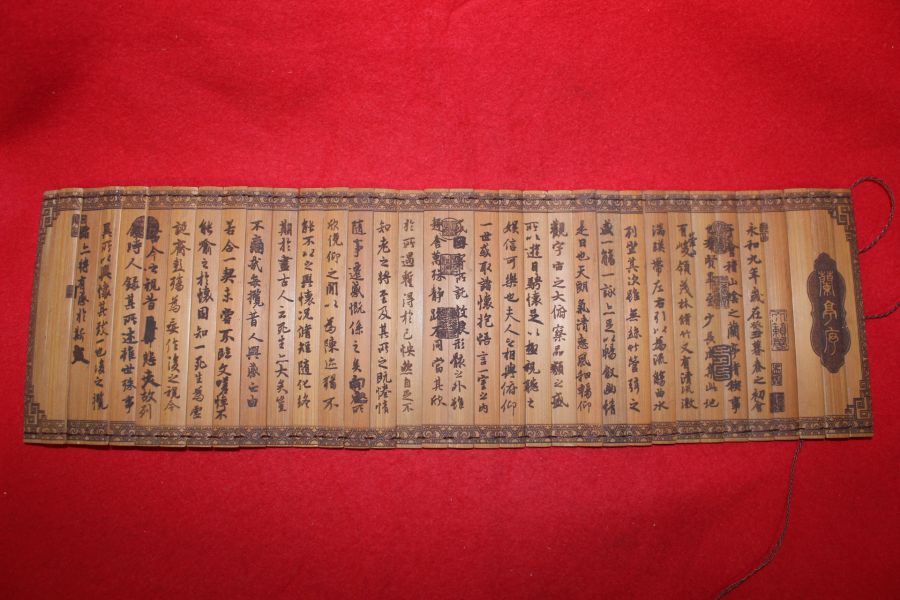 蘭亭序
永和九年歲在癸丑暮春之初會
于會稽山陰之蘭亭脩稧事
也羣賢畢至少長咸集此地
有崇山峻領茂林脩竹又有清流激
湍暎帶左右引以為流觴曲水
列坐其次雖無絲竹管弦之
盛一觴一詠亦足以暢叙幽情
是日也天朗氣清惠風和暢仰
觀宇宙之大俯察品類之盛
所以遊目騁懷足以極視聽之
娛信可樂也夫人之相與俯仰
一世或取諸懷抱悟言一室之內
或因寄所託放浪形骸之外雖
趣舍萬殊靜躁不同當其欣
於所遇暫得於己快然自足不
知老之將至及其所之既惓情
隨事遷感慨係之矣向之所
欣俛仰之閒以為陳迹猶不
能不以之興懷況脩短隨化終
期於盡古人云死生亦大矣豈
不痛哉每攬昔人興感之由
若合一契未嘗不臨文嗟悼不
能喻之於懷固知一死生為虛
誕齊彭殤為妄作後之視今
亦由今之視昔悲夫故列
叙時人錄其所述雖世殊事
異所以興懷其致一也後之攬
者亦將有感於斯文